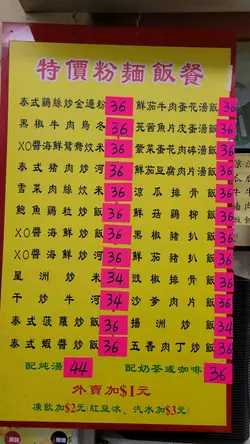 特價粉麵飯餐
泰式鷄絲炒金邊粉 36 鮮茄牛肉蛋花湯飯 36
黑椒牛肉烏冬 36 芫茜魚片皮蛋湯飯 36
XO醬海鮮鴛鴦炆米 36 紫菜蛋花肉碎湯飯 36
泰式豬肉炒河 36 鮮茄豆腐肉片湯飯 36
雪菜肉絲炆米 36 涼瓜排骨飯 36
鮑魚鷄粒炒飯 36 鮮菇鷄柳飯 36
XO醬海鮮炒飯 36 黑椒豬扒飯 36
XO醬海鮮炒河 36 鮮茄豬扒飯 36
星洲炒米 34 豉椒排骨飯 36
干炒牛河 34 沙爹肉片飯 36
泰式菠蘿炒飯 36 揚洲炒飯 34
泰式蝦醬炒飯 36 五香肉丁炒飯 36
配炖湯 44 配奶茶或咖啡 36
外賣加$1元
凍飲加$2元(紅豆冰、汽水加$3元)